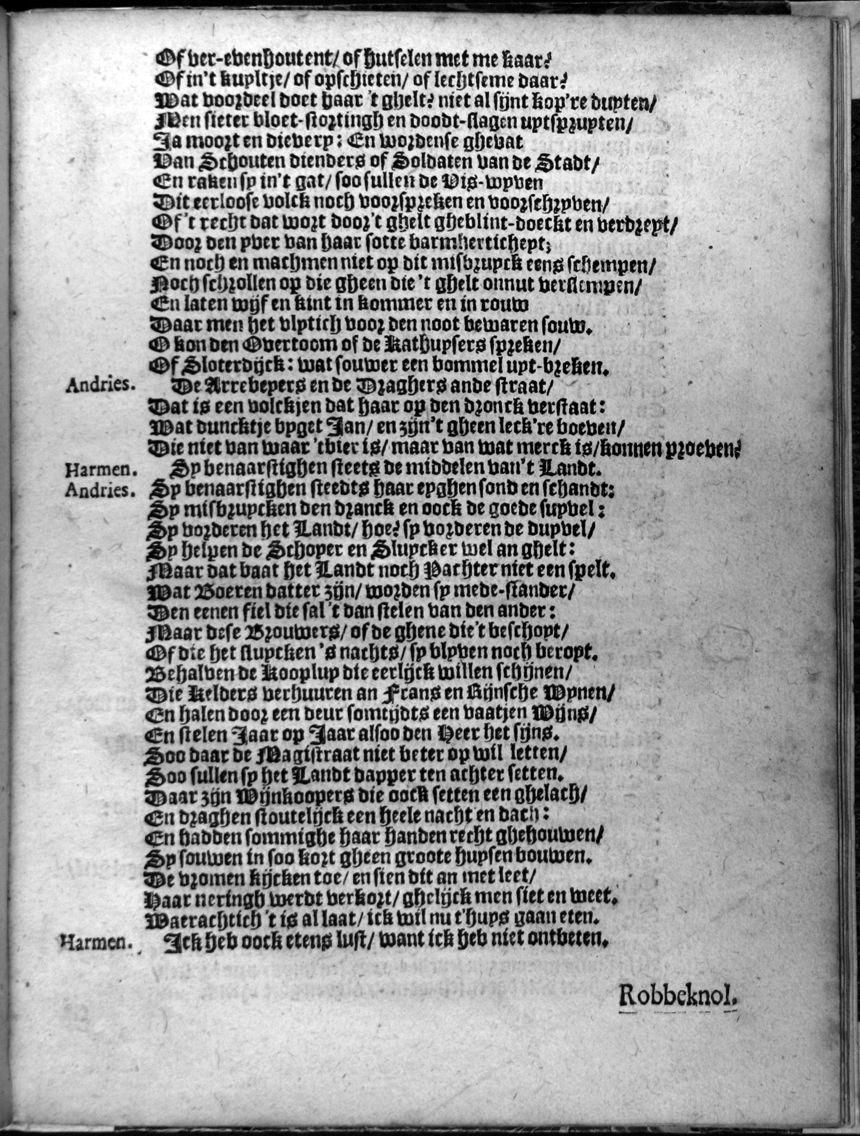 Of ver-evenhoutent/ of hutselen met me kaar?
Of in't kuyltje/ of opschieten/ of lechtseme daar?
Wat voordeel doet haar 't ghelt? niet al sijnt kop're duyten/
Men sieter bloet-stortingh en doodt-slagen uytspruyten/
Ja moort en dievery: En wordense ghevat
Van Schouten dienders of Soldaten van de Stadt/
En raken sy in't gat/ soo sullen de Vis-wyven
Dit eerloose volck noch voorspreken en voorschryven/
Of 't recht dat wort door't ghelt gheblint-doeckt en verdreyt/
Door den yver van haar sotte barmherticheyt;
En noch en machmen niet op dit misbruyck eens schempen/
Noch schrollen op die gheen die 't ghelt onnut verslempen/
En laten wijf en kint in kommer en in rouw
Daar men het vlytich voor den noot bewaren souw.
O kon den Overtoom of de Kathuysers spreken/
Of Sloterdijck: wat souwer een bommel uyt-breken.
Andries. De Arrebeyers en de Draghers ande straat/
Dat is een volckjen dat haar op den dronck verstaat:
Wat duncktje byget Jan/ en zijn't gheen leck're boeven/
Die niet van waar 'tbier is/ maar van wat merck is/ konnen proeven?
Harmen. Sy benaarstighen steets de middelen van't Landt.
Andries. Sy benaarstighen steedts haar eyghen sond en schandt:
Sy misbruycken den dranck en oock de goede suyvel:
Sy vorderen het Landt/ hoe? sy vorderen de duyvel/
Sy helpen de Schoyer en Sluycker wel an ghelt:
Maar dat baat het Landt noch Pachter niet een spelt.
Wat Boeren datter zijn/ worden sy mede-stander/
Den eenen fiel die sal 't dan stelen van den ander:
Maar dese Brouwers/ of de ghene die't beschoyt/
Of die het sluycken 's nachts/ sy blyven noch beroyt.
Behalven de Kooplup die eerlijck willen schijnen/
Die Kelders verhuuren an Frans en Rijnsche Wynen/
En halen door een deur somtijdts een vaatjen Wijns/
En stelen Jaar op Jaar alsoo den Heer het sijns.
Soo daar de Magistraat niet beter op wil letten/
Soo sullen sy het Landt dapper ten achter setten.
Daar zijn Wijnkoopers die oock setten een ghelach/
En draghen stoutelijck een heele nacht en dach:
En hadden sommighe haar handen recht ghehouwen/
Sy souwen in soo kort gheen groote huysen bouwen.
De vromen kijcken toe/ en sien dit an met leet/
Haar neringh werdt verkort/ ghelijck men siet en weet.
Waerachtich 't is al laat/ ick wil nu t'huys gaan eten.
Harmen. Ick heb oock etens lust/ want ick heb niet ontbeten.
Robbeknol.